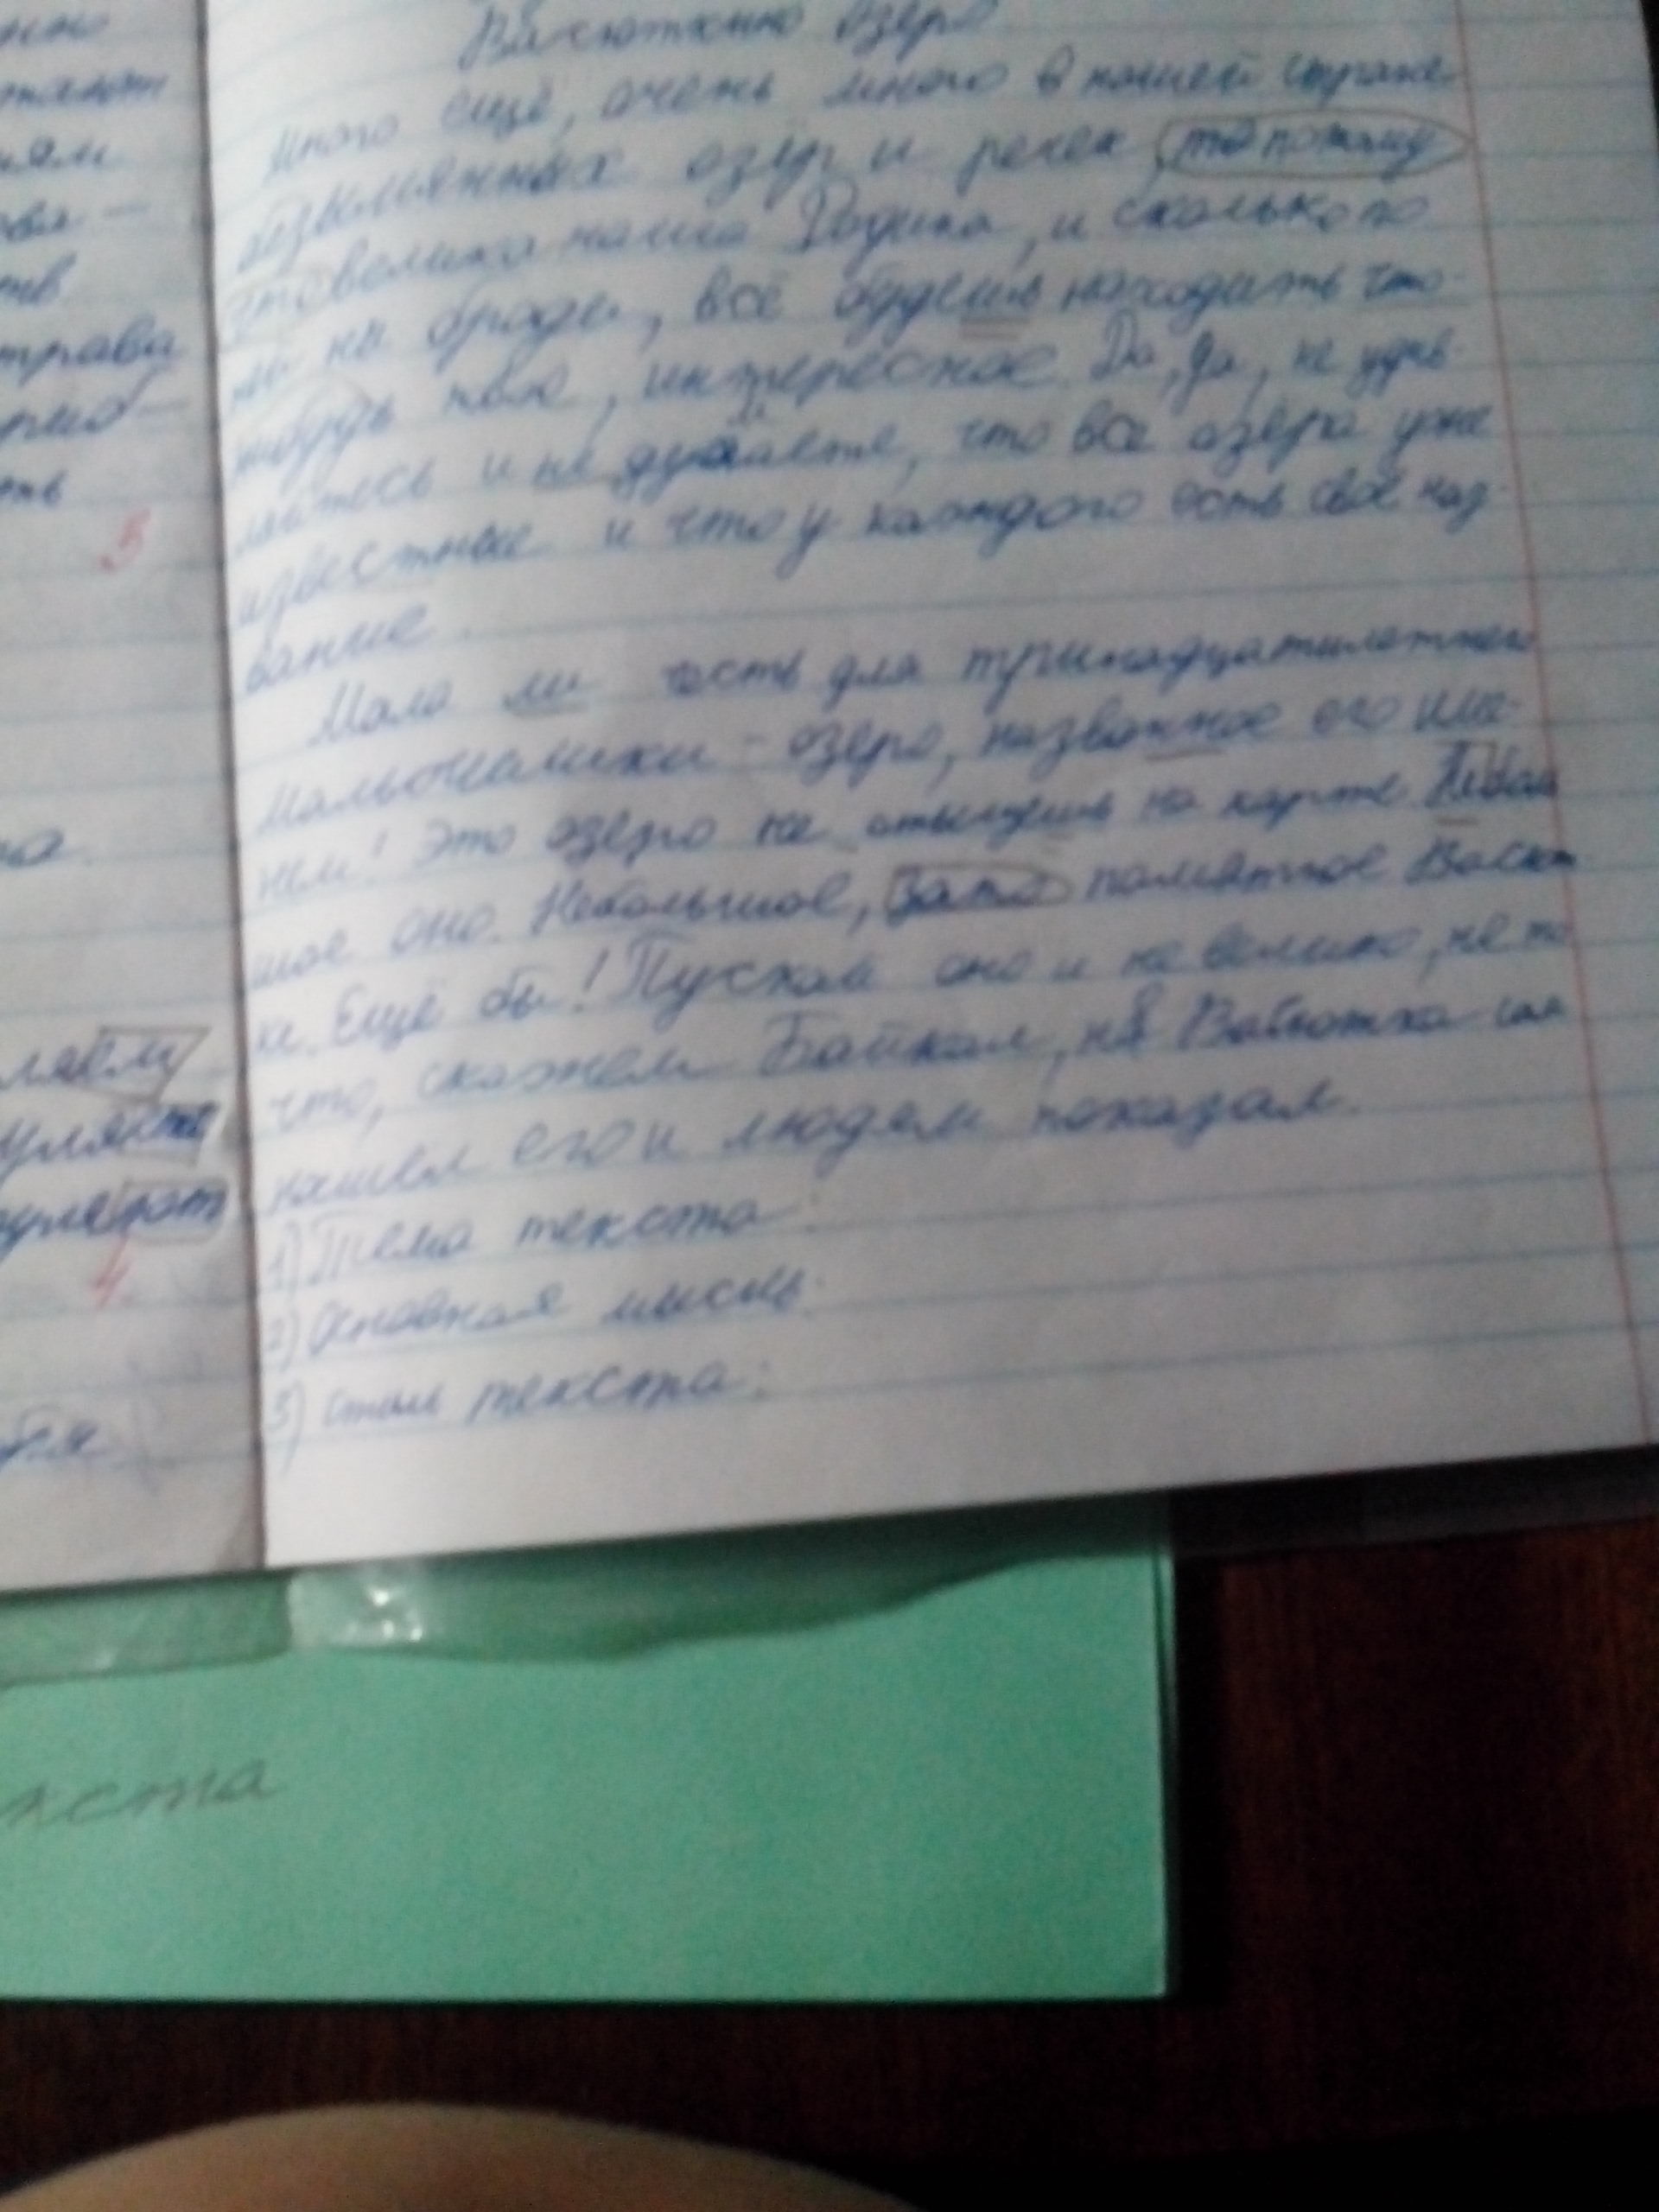 Васюткино озеро
Много ещё, очень много в нашей стране
безымянных озёр и речек, потому
что велика наша Родина, и сколько по
ней ни броди, всё будешь находить что-
нибудь новое, интересное. Да, да, не удив-
ляйтесь и не думайте, что все озёра уже
известные и что у каждого есть своё наз-
вание.
Мала ли честь для тринадцатилетнего
мальчишки - озеро, названное его име-
нем! Это озеро не отыщешь на карте. Неболь
шое оно. Небольшое, зато памятное Васют
ке. Ещё бы! Пускай оно и не велико, не то
что, скажем Байкал, но Васютка сам
нашёл его и людям показал.
1) Тема текста:
2) Основная мысль:
3) стиль текста:
трава
5
ляем
4
кста